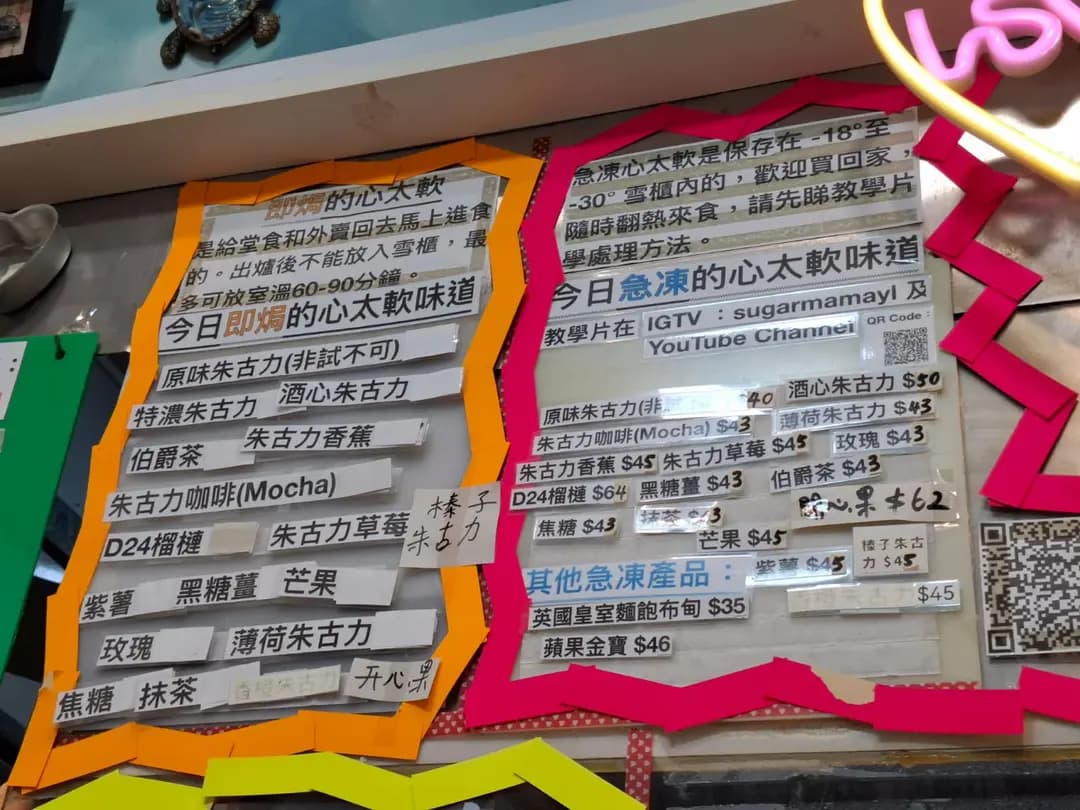 即焗的心太軟
是給堂食和外賣回去馬上進食
的。出爐後不能放入雪櫃，最
多可放室溫60-90分鐘。
今日即焗的心太軟味道
原味朱古力(非試不可)
特濃朱古力 酒心朱古力
伯爵茶 朱古力香蕉
朱古力咖啡(Mocha)
榛子
朱古力
D24榴槤 朱古力草莓
紫薯 黑糖薑 芒果
玫瑰 薄荷朱古力
焦糖 抹茶 朱古力 开心果
急凍心太軟是保存在 -18°至
-30° 雪櫃內的，歡迎買回家，
隨時翻熱來食，請先睇教學片
學處理方法。
今日急凍的心太軟味道
教學片在 IGTV : sugarmamayl 及
YouTube Channel
QR Code :
原味朱古力(非 40 酒心朱古力 $50
朱古力咖啡(Mocha) $43 薄荷朱古力 $43
朱古力香蕉 $45 朱古力草莓 $45 玫瑰 $43
D24榴槤 $64 黑糖薑 $43 伯爵茶 $43
焦糖 $43 抹茶 $43 開心果 $62
芒果 $45 榛子朱古
力 $45
其他急凍產品： 紫薯 $45
英國皇室麵飽布甸 $35 朱古力 $45
蘋果金寶 $46